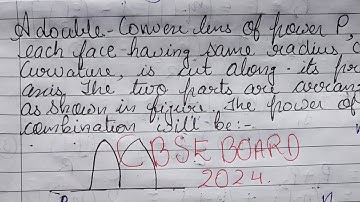 A double-Convex lens of power P,
each face having same radius o
curvature, is cut along its pr
axis. The two parts are arran
as shown in figure. The power of
combination will be:-
CBSE BOARD
2024.